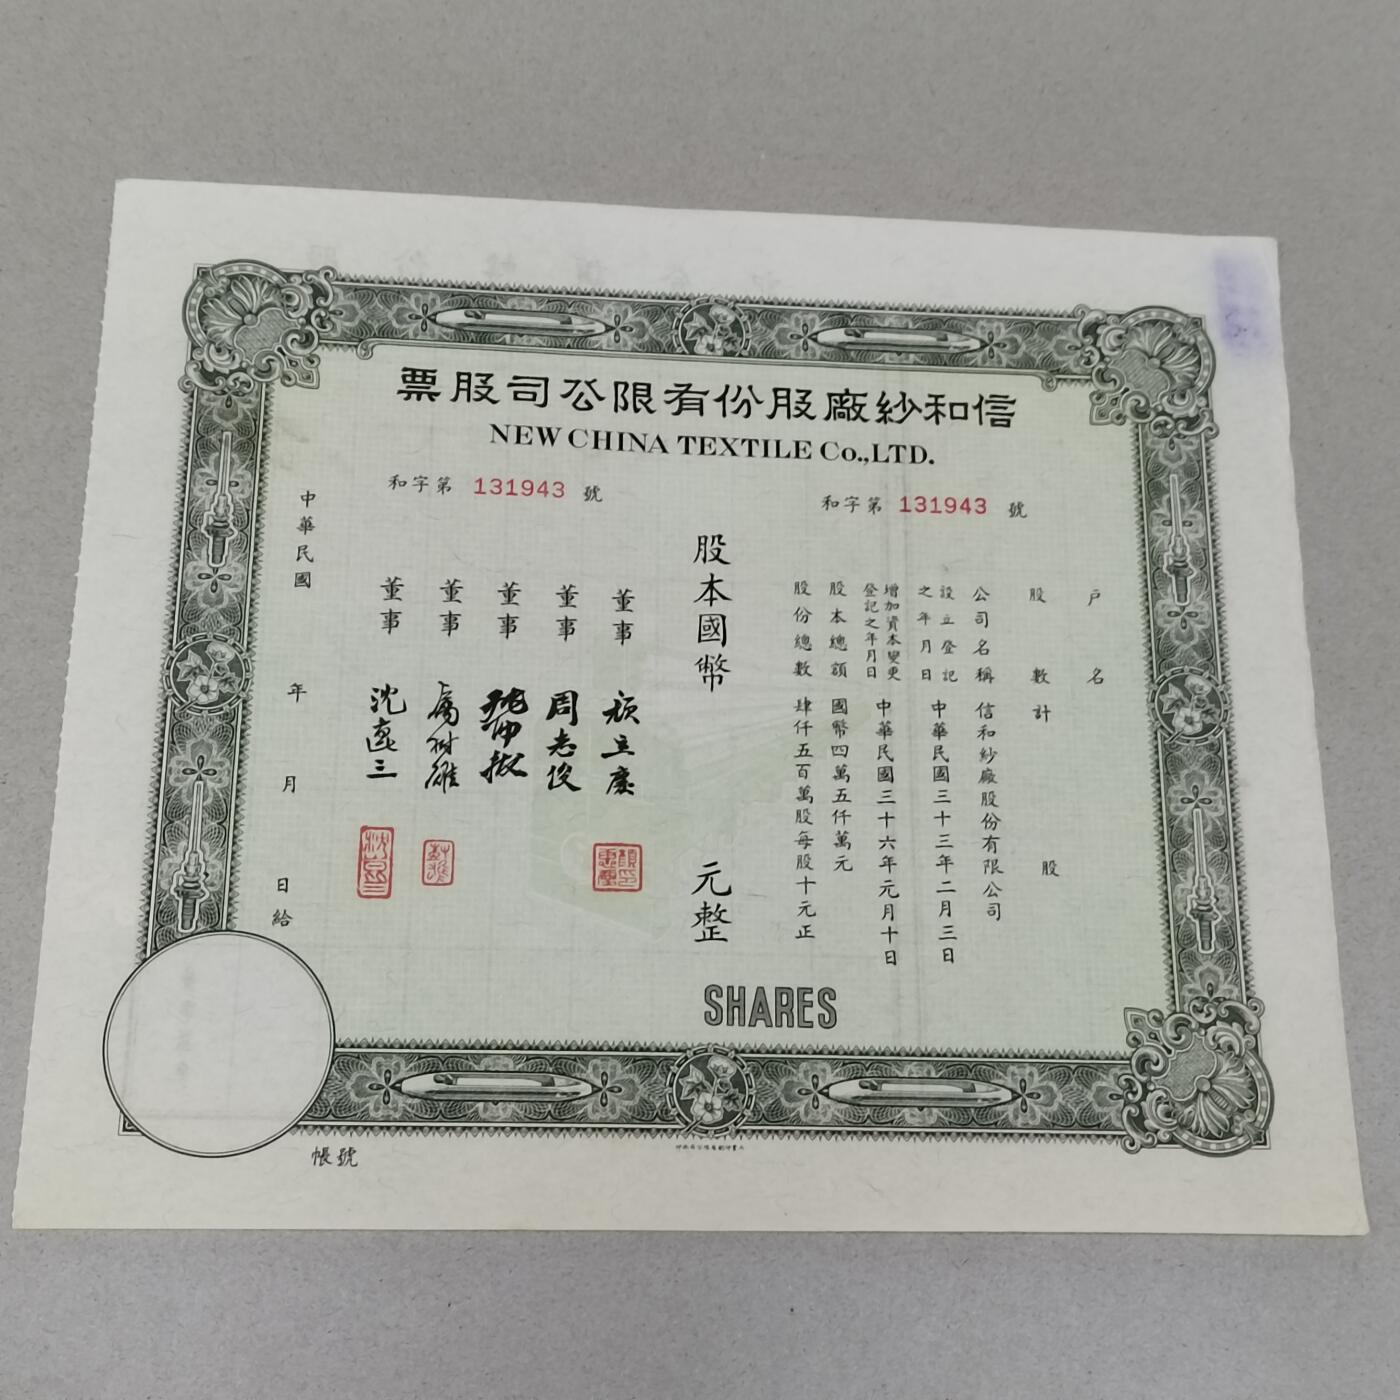 信和紗廠股份有限公司股票
NEW CHINA TEXTILE Co.,LTD.
和字第 131943 號
和字第 131943 號
戶名
股數計 股
公司名稱 信和紗廠股份有限公司
設立登記之年月日 中華民國三十三年二月三日
增加資本變更登記之年月日 中華民國三十六年元月十日
股本總額 國幣四萬五仟萬元
股份總數 肆仟五百萬股每股十元正
股本國幣 元整
董事
董事 周志俊
董事
董事
董事 沈
中華民國 年 月 日給
SHARES
帳號